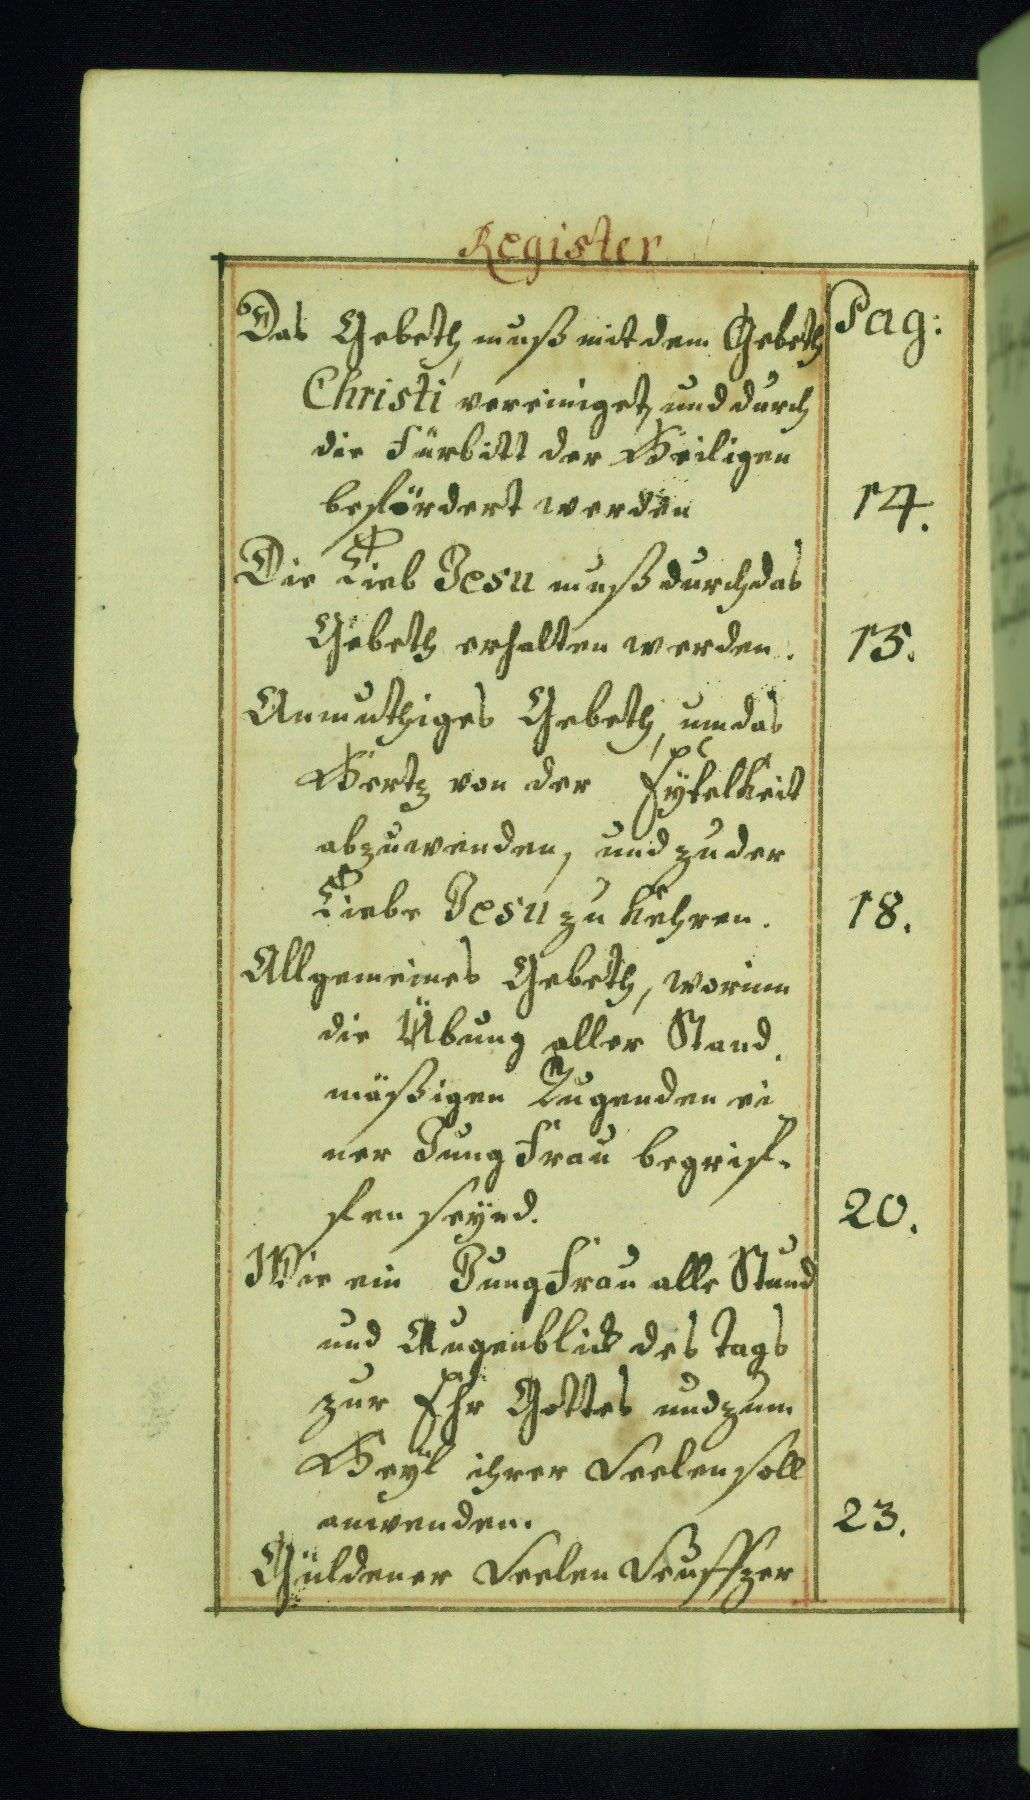 Register
Das Gebeth muß mit dem Gebeth Pag:
Christi vereiniget, und durch
die Fürbitt der Heiligen
befördert werden 14.
Die Lieb Jesu muß durch das
Gebeth erhalten werden. 15.
Anmuthiges Gebeth, um das
Hertz von der Eytelkeit
abzuwenden, und zu der
Liebe Jesu zu kehren. 18.
Allgemeines Gebeth, worinn
die Übung aller Stand,
mäßigen Tugenden ei
ner Jungfrau begrif-
fen seynd. 20.
Wie ein Jungfrau alle Stund
und Augenblick des Tags
zur Ehr Gottes und zum
Heyl ihrer Seelen soll
anwenden. 23.
Güldener Seelen Seuffzer